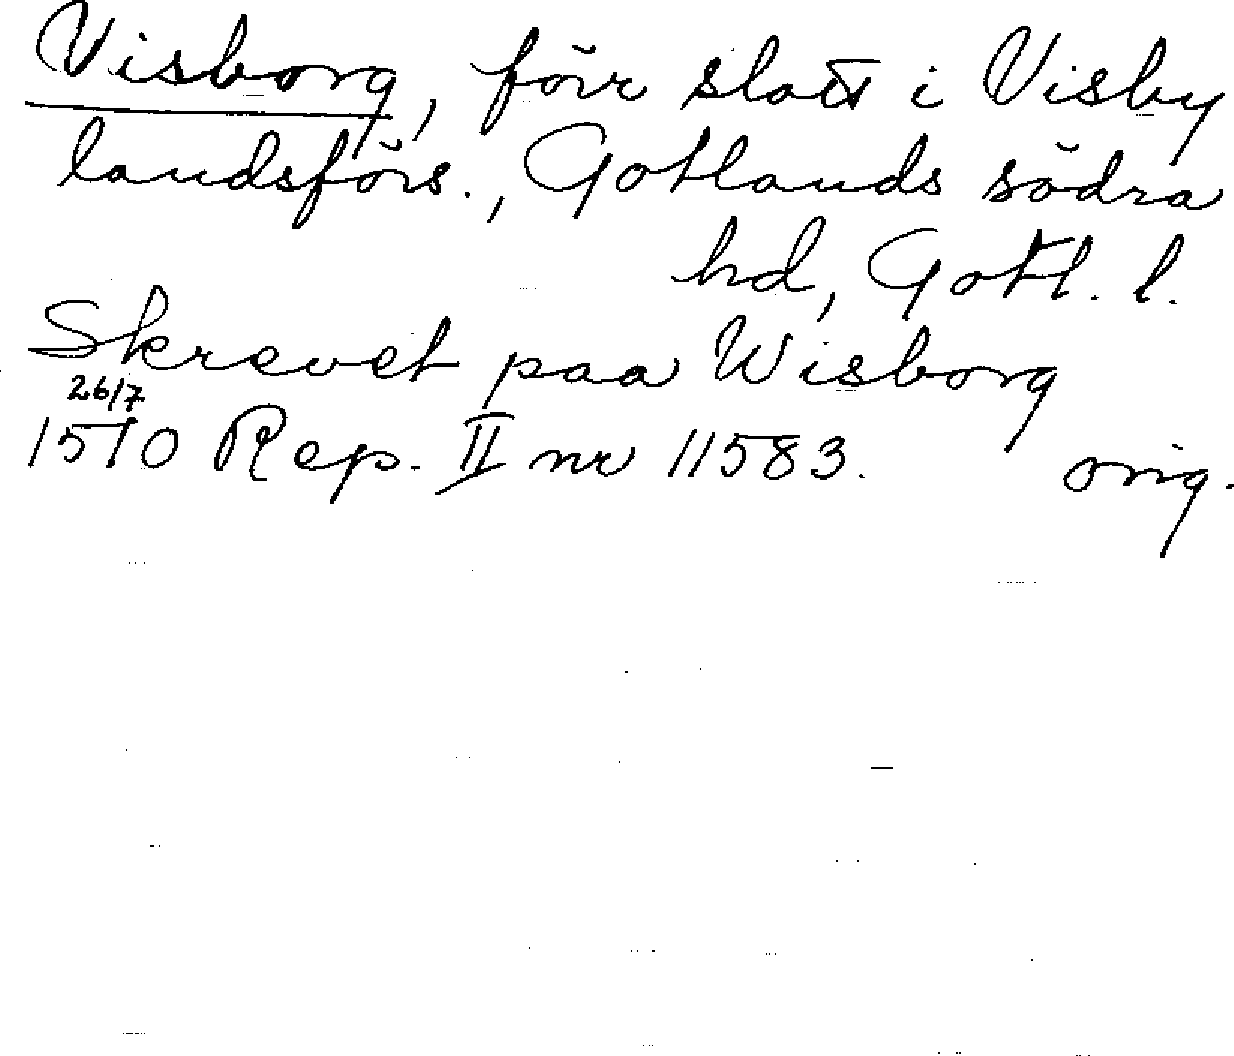 Visborg, förr slott i Visby
landsförs., Gotlands södra
hd, Gotl. l.
Skrevet paa Wisborg
26/7
1510 Rep. II nr 11583. orig.